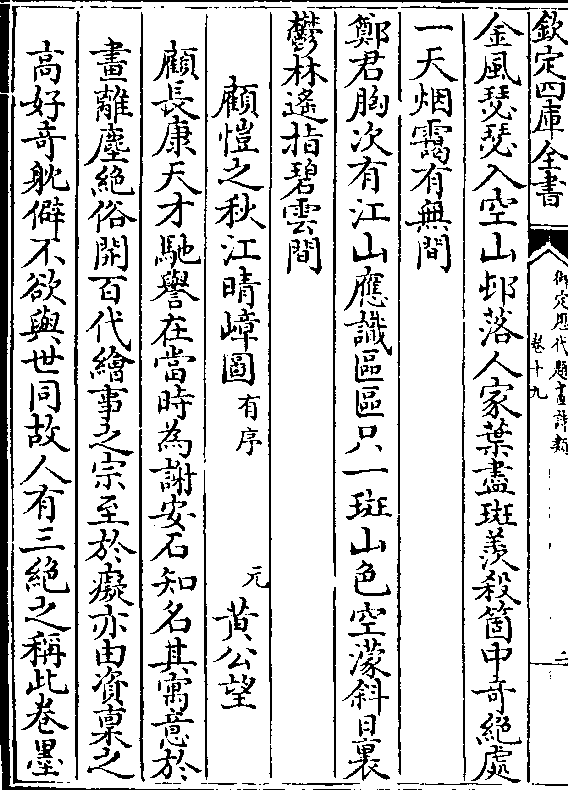 欽定四庫全書
御定歷代題畫詩類
卷十九
二
金風瑟瑟入空山邨落人家葉盡斑羨殺箇中奇絶處
一天烟靄有無間
鄭君胸次有江山應識區區只一斑山色空濛斜日裏
鬱林遙指碧雲間
顧愷之秋江晴嶂圖有序 元黃公望
顧長康天才馳譽在當時為謝安石知名其寓意於
畫離塵絶俗開百代繪事之宗至於癡亦由資稟之
高好奇躭僻不欲與世同故人有三絶之稱此卷墨